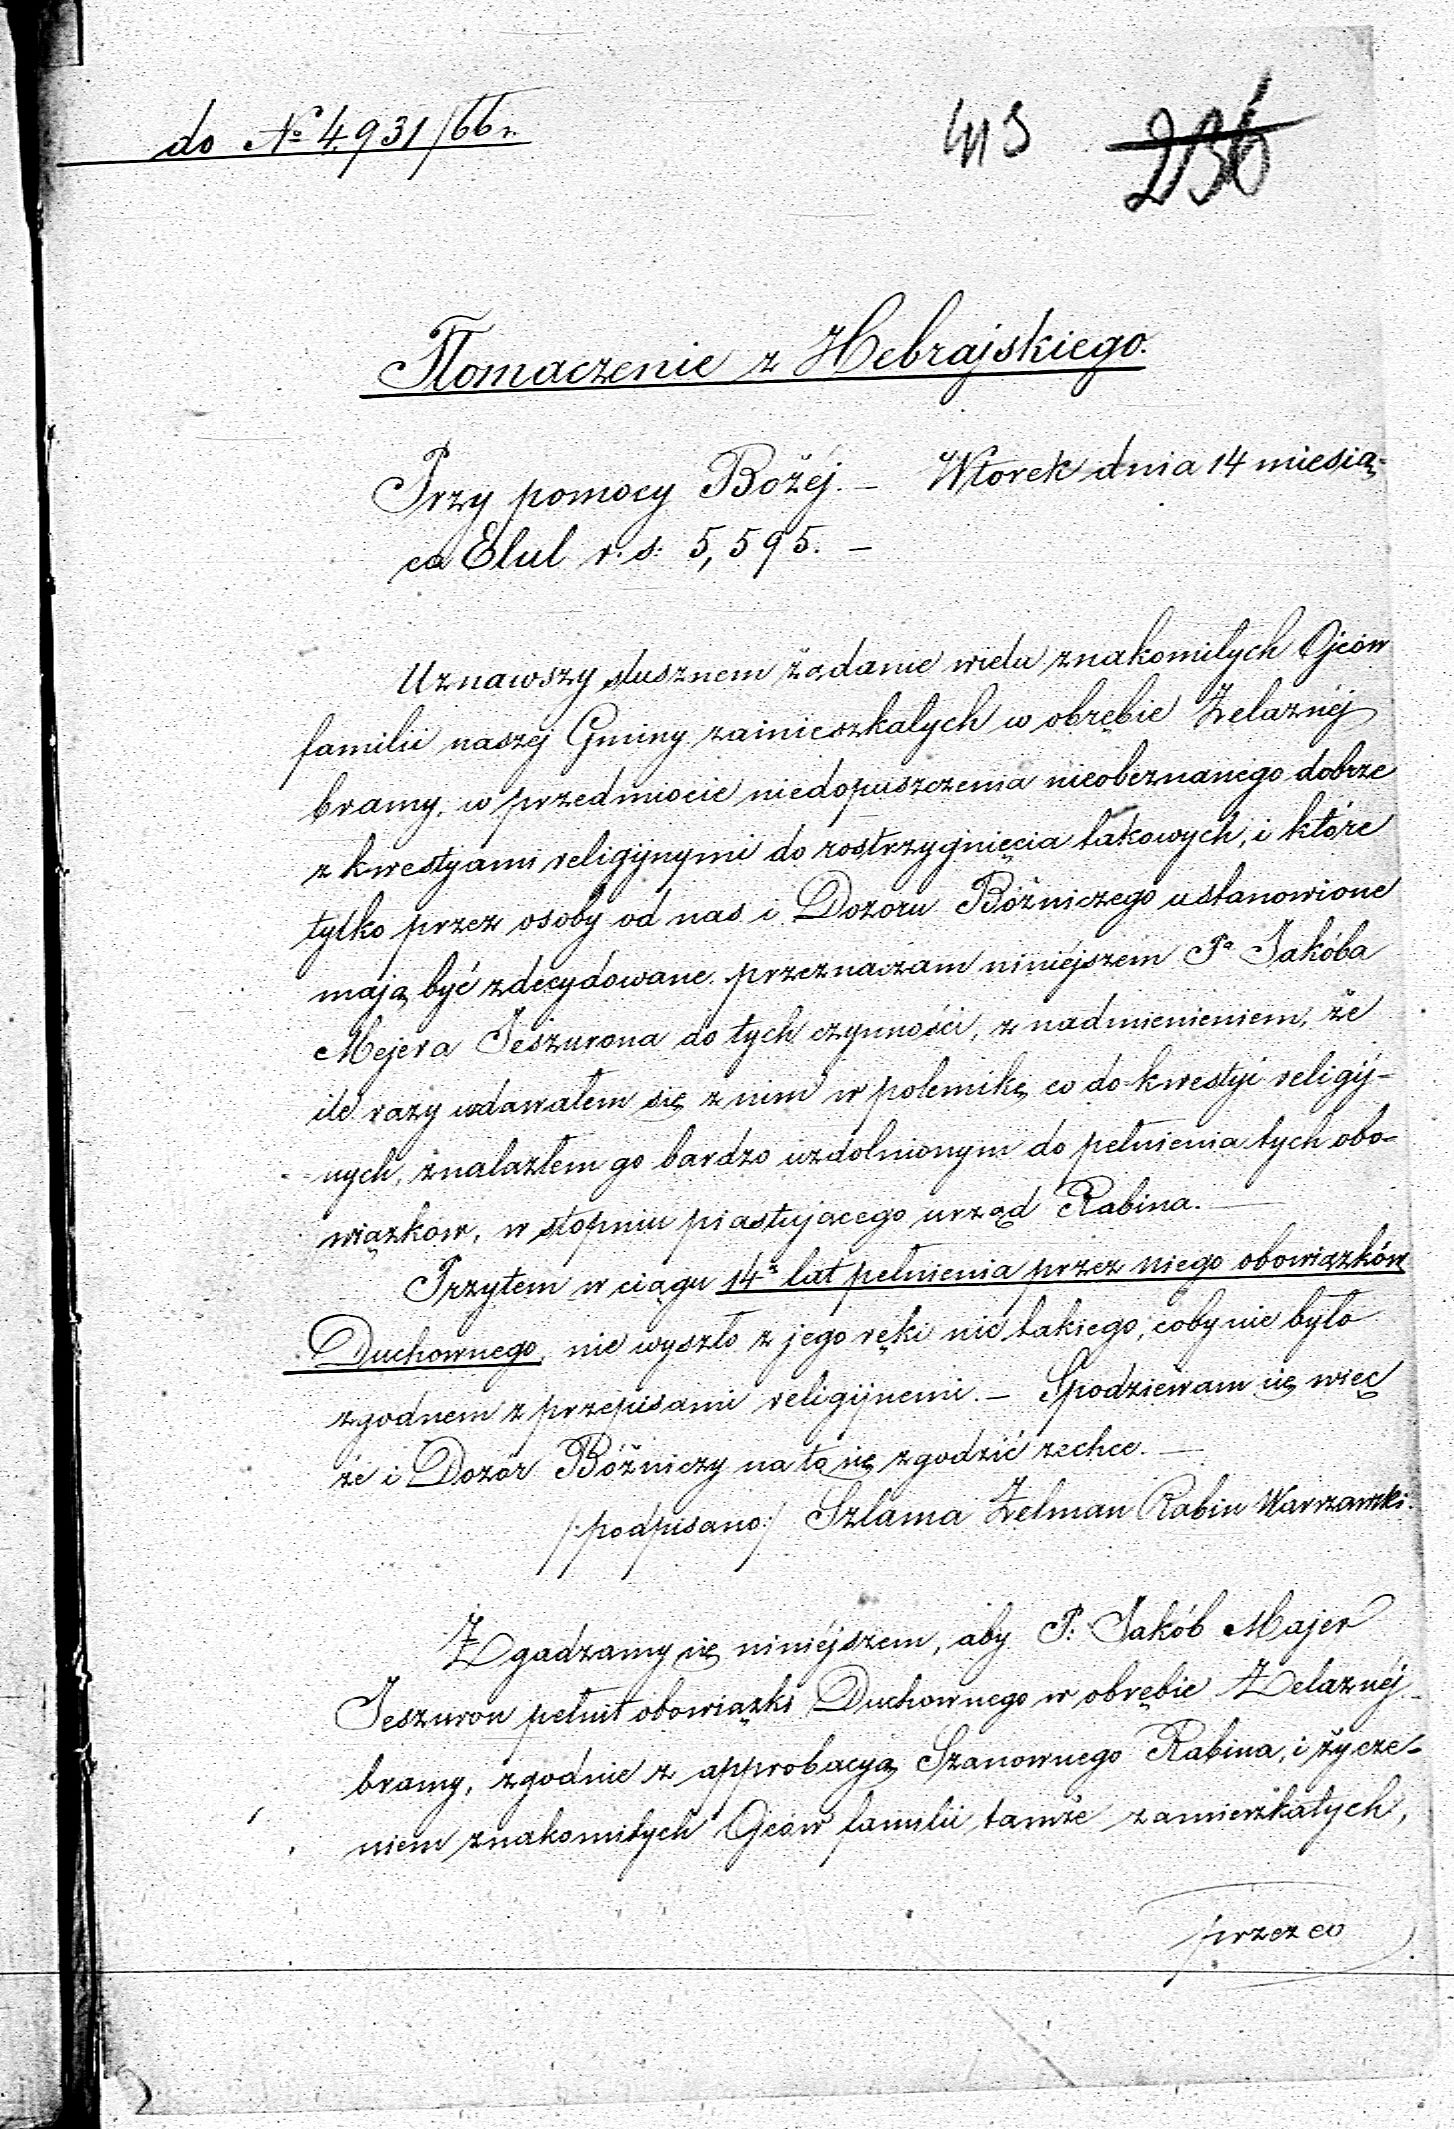 do № 4,931/66 r.
413 236
Tłomaczenie z Hebrajskiego.
Przy pomocy Bożéj. – Wtorek dnia 14 miesią-
ca Elul r. s. 5,595. –
Uznawszy słusznem żądanie wielu znakomitych Ojców
familii naszéj Gminy zamieszkałych w obrębie Żelaznéj
bramy, w przedmiocie niedopuszczenia nieobeznanego dobrze
z kwestyami religijnymi do rostrzygnięcia takowych, i które
tylko przez osoby od nas i Dozoru Bóżniczego ustanowione
mają być zdecydowane. przeznaczam niniéjszém Pª Jakóba
Mejera Jeszurona do tych czynności, z nadmienieniem, że
ile razy wdawałem się z nim w polemikę co do kwestyi religij-
nych, znalazłem go bardzo uzdolnionym do pełnienia tych obo-
wiązkow, w stopniu piastującego urząd Rabina. –
Przytem w ciągu 14 lat pełnienia przez niego obowiązków
Duchownego, nie wyszło z jego ręki nic takiego, coby nie było
zgodnem z przepisami religijnemi. – Spodziewam się więc
że i Dozór Bóżniczy na to się zgodzić zechce. –
/:podpisano:/ Szlama Zelman Rabin Warszawski.
Zgadzamy się niniéjszem, aby P. Jakób Majer
Jeszuron pełnił obowiązki Duchownego w obrębie Żelaznéj
bramy, zgodnie z approbacyą Szanownego Rabina, i życze-
niem znakomitych Ojców familii tamże zamieszkałych,
przez co